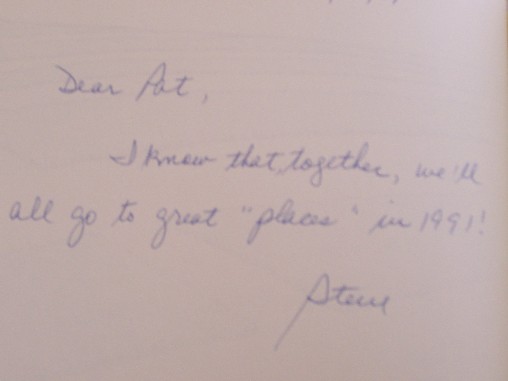 Dear Pat,
I know that, together, we'll
all go to great "places" in 1991!
Steve